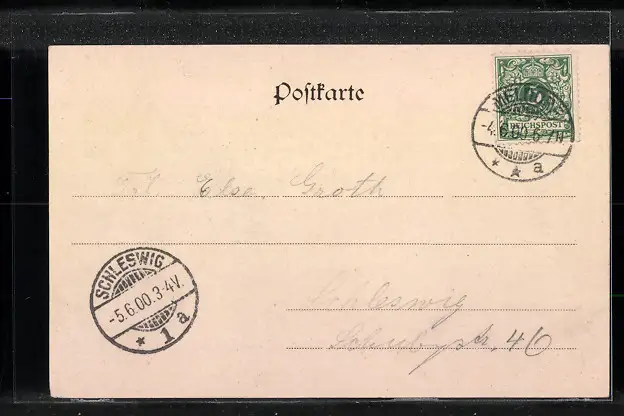 Postkarte
REICHSPOST
-4.6.00.6-7N
a
Frl Elsa Groth
SCHLESWIG
-5.6.00.3-4V.
* 1 a
Schleswig
46